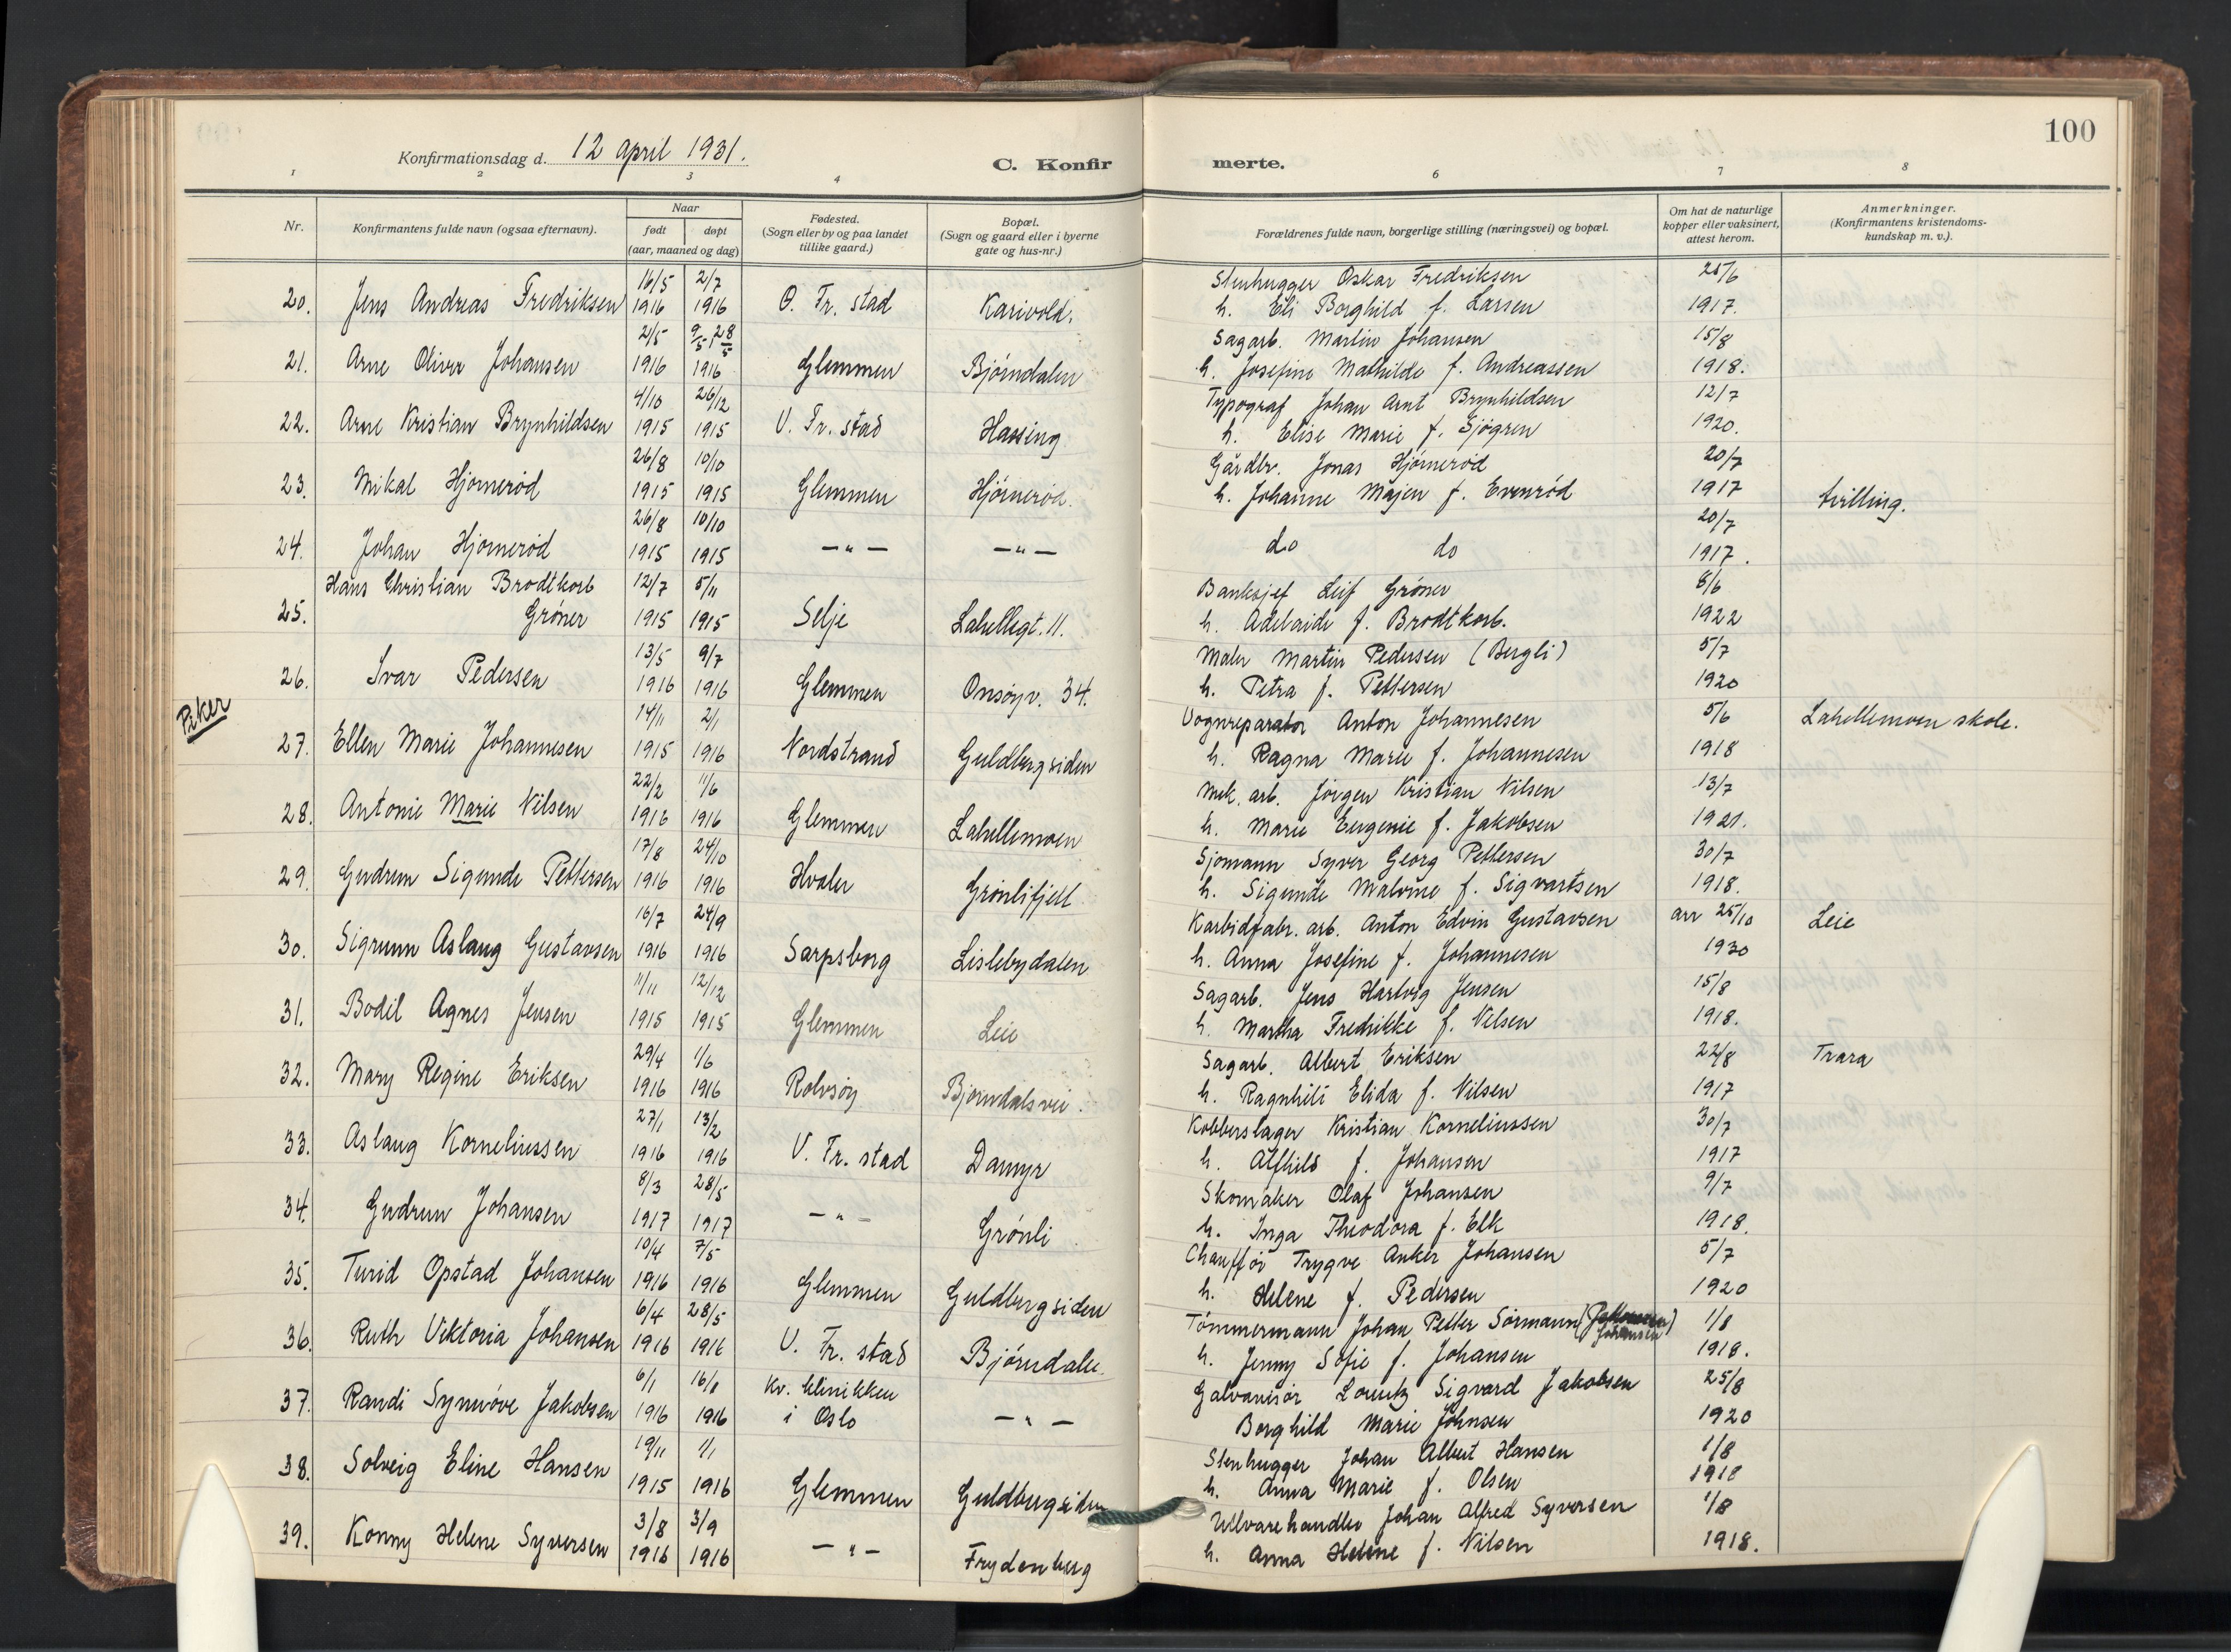 100
Konfirmationsdag d. 12 april 1931.
C. Konfirmerte.
1 2 3 4 6 7 8
Nr.
Konfirmantens fulde navn (ogsaa efternavn).
Naar
født døpt
(aar, maaned og dag)
Fødested.
(Sogn eller by og paa landet
tillike gaard.)
Bopæl.
(Sogn og gaard eller i byerne
gate og hus-nr.)
Forældrenes fulde navn, borgerlige stilling (næringsvei) og bopæl.
Om hat de naturlige
kopper eller vaksinert,
attest herom.
Anmerkninger.
(Konfirmantens kristendoms-
kundskap m. v.).
16/5 2/7 Stenhugger Oskar Fredriksen 25/6
20. Jens Andreas Fredriksen 1916 1916 O. Fr. stad Karivold. h. Eli Borghild f. Larsen 1917.
2/5 9/5, 28/5 Sagarb. Martin Johansen 15/8
21. Arne Oliver Johansen 1916 1916 Glemmen Bjørndalen h. Josefine Mathilde f. Andreassen 1918.
4/10 26/12 Typograf Johan Arnt Brynhildsen 12/7
22. Arne Kristian Brynhildsen 1915 1915 V. Fr. stad Hassing h. Elise Marie f. Sjøgren 1920.
26/8 10/10 Gårdbr. Jonas Hjørnerød 20/7
23. Mikal Hjørnerød 1915 1915 Glemmen Hjørnerød. h. Johanne Majen f. Evenrød 1917 tvilling.
26/8 10/10 20/7
24. Johan Hjørnerød 1915 1915 — " — — " — do do 1917.
Hans Christian Brodtkorb 12/7 5/11 Banksjef Leif Grøner 8/6
25. Grøner 1915 1915 Selje Lahellegt. 11. h. Adelaide f. Brodtkorb. 1922
13/5 9/7 Maler Martin Pedersen (Bergli) 5/7
26. Ivar Pedersen 1916 1916 Glemmen Onsøyv. 34. h. Petra f. Pettersen 1920
Piker
14/11 2/1 Vognreparatør Anton Johannesen 5/6 Lahellemoen skole.
27. Ellen Marie Johannesen 1915 1916 Nordstrand Guldbergsiden h. Ragna Marie f. Johannesen 1918
22/2 11/6 Mek. arb. Jørgen Kristian Nilsen 13/7
28. Antonie Marie Nilsen 1916 1916 Glemmen Lahellemoen h. Marie Eugenie f. Jakobsen 1921.
17/8 24/10 Sjømann Syver Georg Pettersen 30/7
29. Gudrun Sigunde Pettersen 1916 1916 Hvaler Grønlifjell h. Sigunde Malvine f. Sigvartsen 1918.
16/7 24/9 Karbidfabr. arb. Anton Edvin Gustavsen arr 25/10 Leie
30. Sigrunn Aslaug Gustavsen 1916 1916 Sarpsborg Lislebydalen h. Anna Josefine f. Johannesen 1930
11/11 12/12 Sagarb. Jens Hartvig Jensen 15/8
31. Bodil Agnes Jensen 1915 1915 Glemmen Leie h. Martha Fredrikke f. Nilsen 1918.
29/4 1/6 Sagarb. Albert Eriksen 22/8 Trara
32. Mary Regine Eriksen 1916 1916 Rolvsøy Bjørndalsvei. h. Ragnhild Elida f. Nilsen 1917
27/1 13/2 Kobberslager Kristian Korneliussen 30/7
33. Aslaug Korneliussen 1916 1916 V. Fr. stad Dammyr h. Alfhild f. Johansen 1917
8/3 28/5 Skomaker Olaf Johansen 9/7
34. Gudrun Johansen 1917 1917 — " — Grønli h. Inga Theodora f. Elk 1918.
10/4 7/5 Chauffør Trygve Anker Johansen 5/7
35. Turid Opstad Johansen 1916 1916 Glemmen Guldbergsiden h. Helene f. Pedersen 1920
6/4 28/5 Tømmermann Johan Petter Sørmann (Johansen) 1/8
36. Ruth Viktoria Johansen 1916 1916 V. Fr. stad Bjørndalen. h. Jenny Sofie f. Johansen 1918.
6/1 16/1 Kv. klinikken Galvanisør Lorentz Sigvard Jakobsen 25/8
37. Randi Synnøve Jakobsen 1916 1916 i Oslo — " — Borghild Marie Johnsen 1920
19/11 1/1 Stenhugger Johan Albert Hansen 1/8
38. Solveig Eline Hansen 1915 1916 Glemmen Guldbergsiden h. Anna Marie f. Olsen 1918
3/8 3/9 Johan Alfred Syversen 1/8
39. Konny Helene Syversen 1916 1916 — " — Frydenberg h. Anna Helene f. Nilsen 1918.